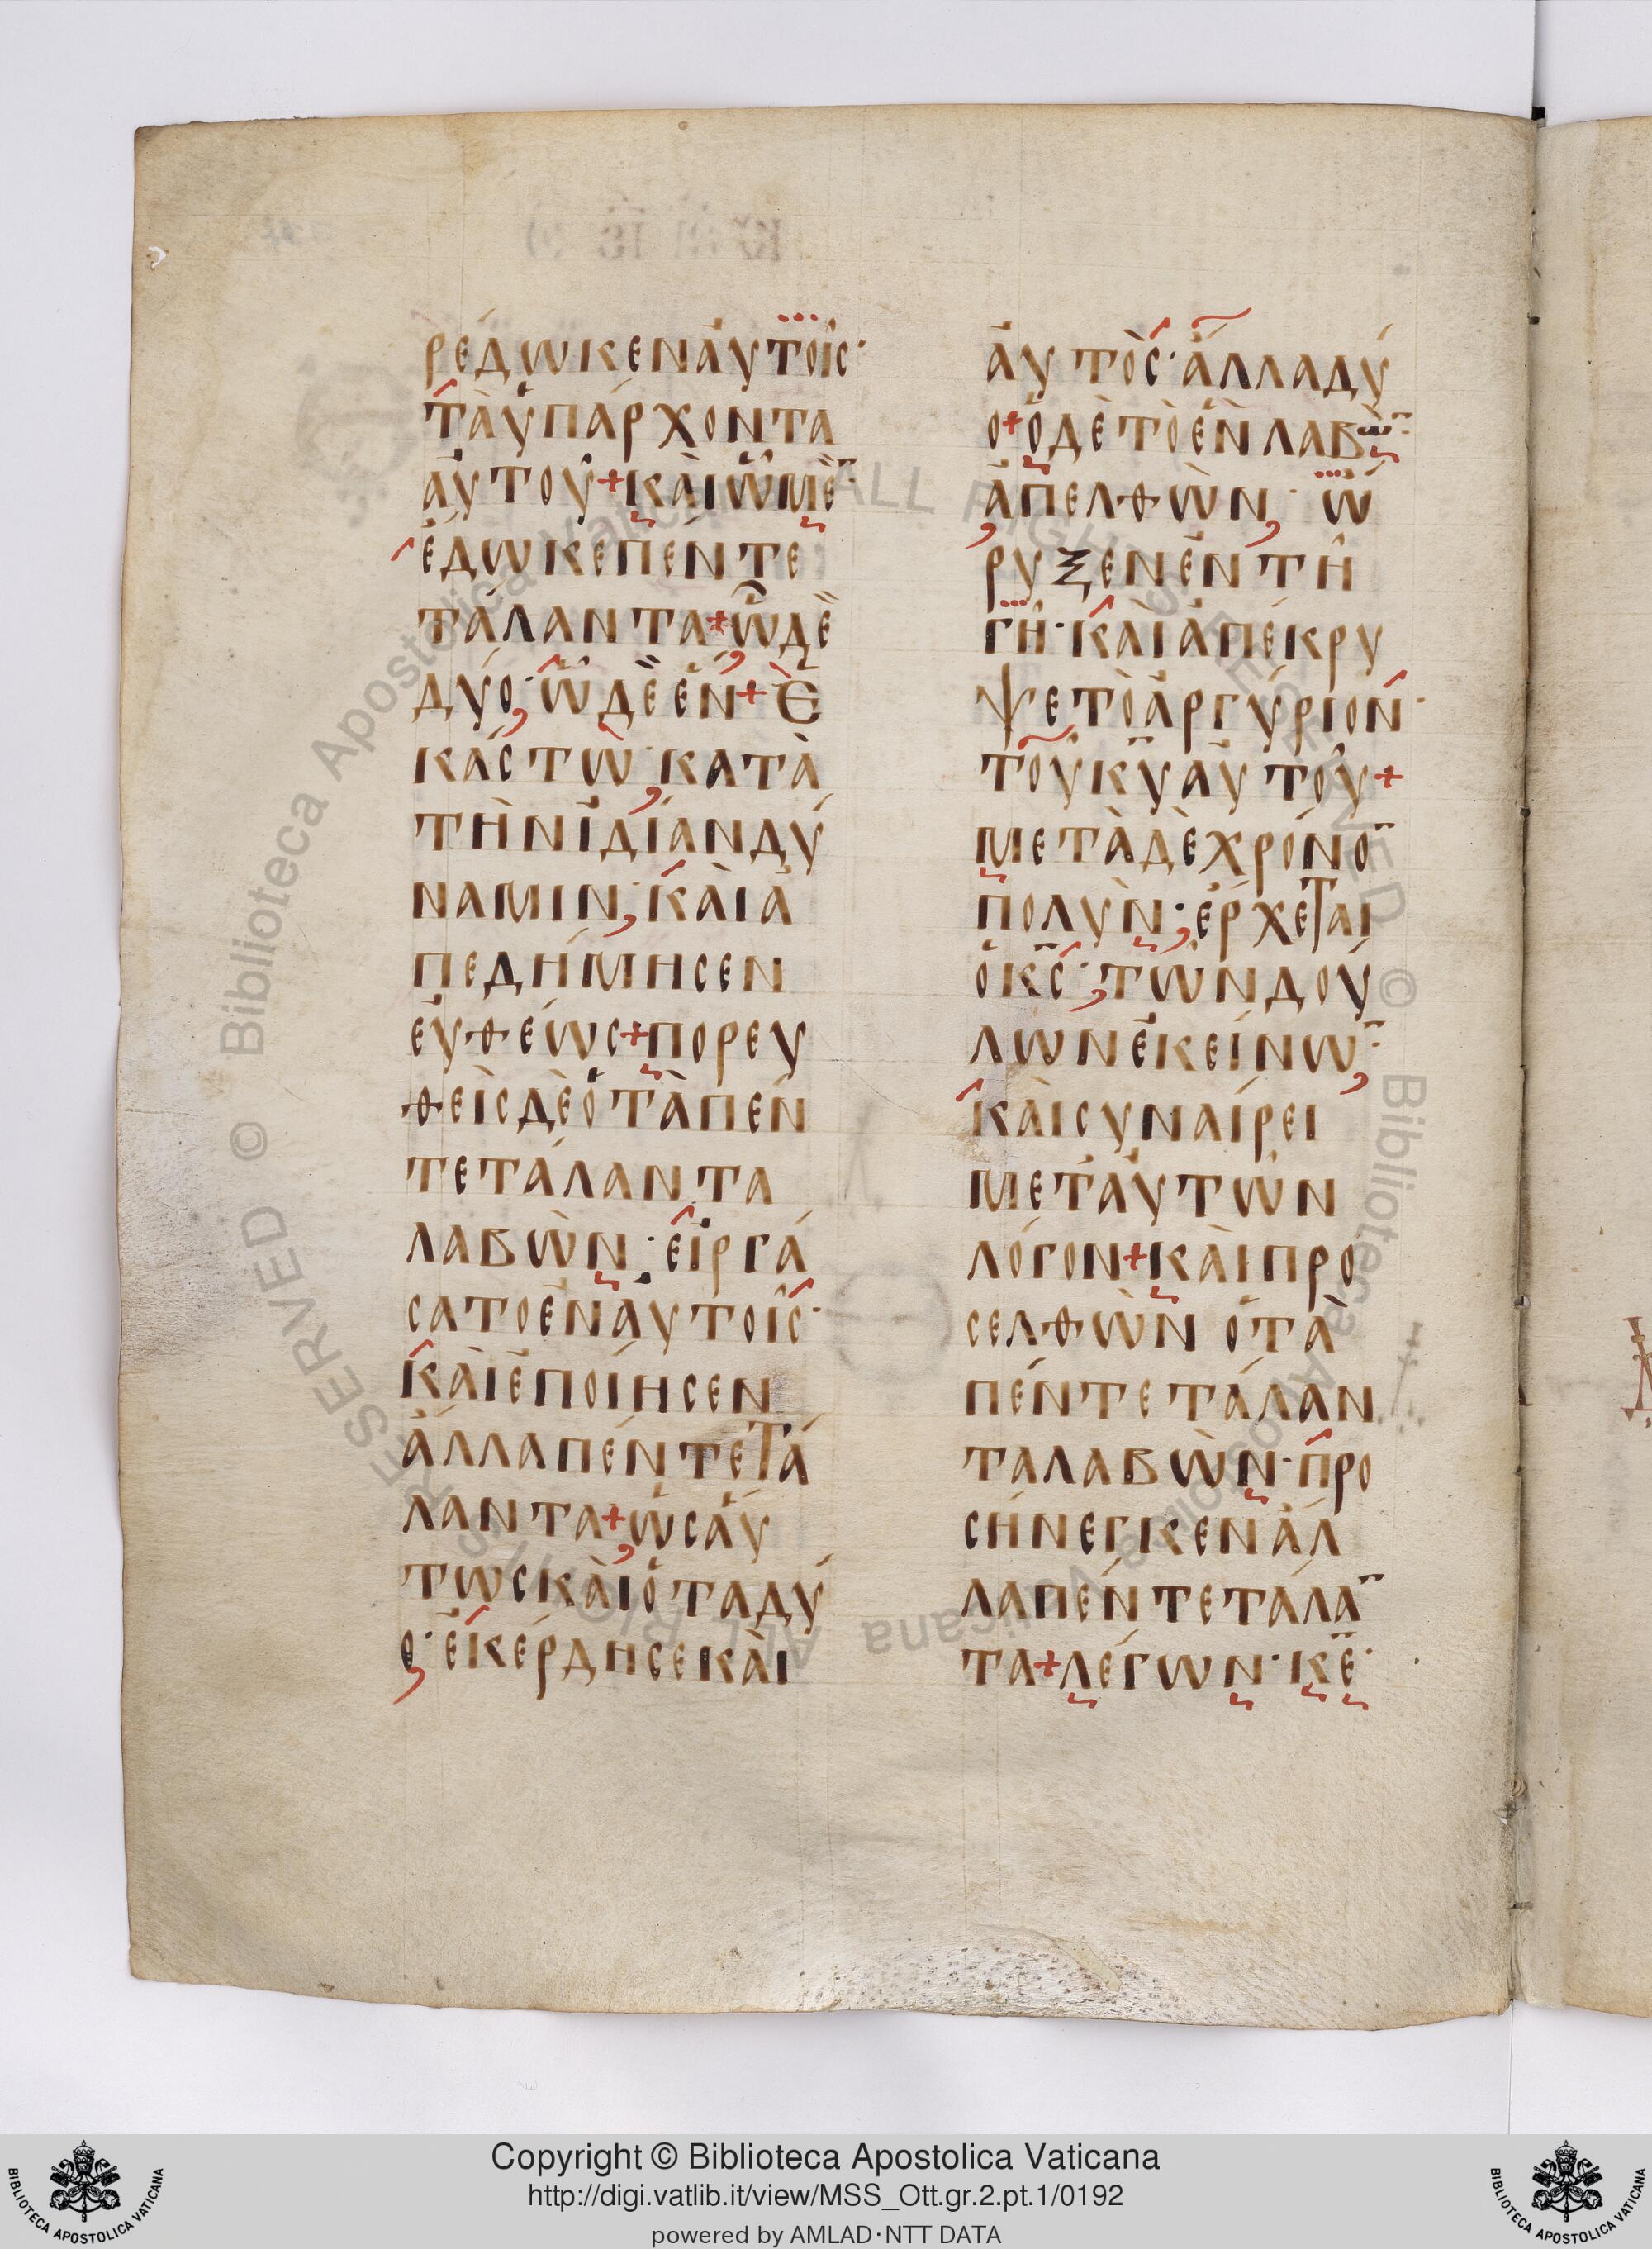 ρέδωκεν ἀυτοῖς·
τὰ ὑπάρχοντα
ἀυτοῦ + κὰι ὧ μὲ̄·
ἔδωκε πέντε
τάλαντα + ὧ δὲ
δύο· ὧ δὲ ἕν + Ἑ
κάστω· κατὰ
τὴν ἰδίαν δύ
ναμιν· κὰι ἀ
πεδήμησεν
ἐυθέως + πορευ
θεὶς δὲ ὁ τὰ πέν
τε τάλαντα
λαβὼν· ἐιργά
σατο ἐν ἀυτοῖς·
κὰι ἐποίησεν
ἄλλα πέντε τά
λαντα + ὡσάυ
τως κὰι ὁ τα δύ
ο· ἐκέρδησε κὰι
ἀυτὸς· ἄλλα δύ
ο + ὁ δὲ τὸ ἓν λαβὼ̄·
ἀπελθὼν· ὤ
ρυξεν ἐν τῆ
γῆ· κὰι ἀπέκρυ
ψε τὸ ἀργύριον·
τοῦ κ̄υ ἀυτοῦ +
μετὰ δὲ χρόνο̄
πολὺν· ἔρχεται
ὁ κ̄ς· τῶν δού
λων ἐκείνω̄·
κὰι συναίρει
μετ ἀυτῶν
λόγον + κὰι προ
σελθὼν ὁ τὰ
πέντε τάλαν
τα λαβὼν· προ
σήνεγκεν ἄλ
λα πέντε τάλᾱ
τα + λέγων· κ̄ε·
Copyright © Biblioteca Apostolica Vaticana
http://digi.vatlib.it/view/MSS_Ott.gr.2.pt.1/0192
powered by AMLAD·NTT DATA
BIBLIOTECA APOSTOLICA VATICANA
BIBLIOTECA APOSTOLICA VATICANA